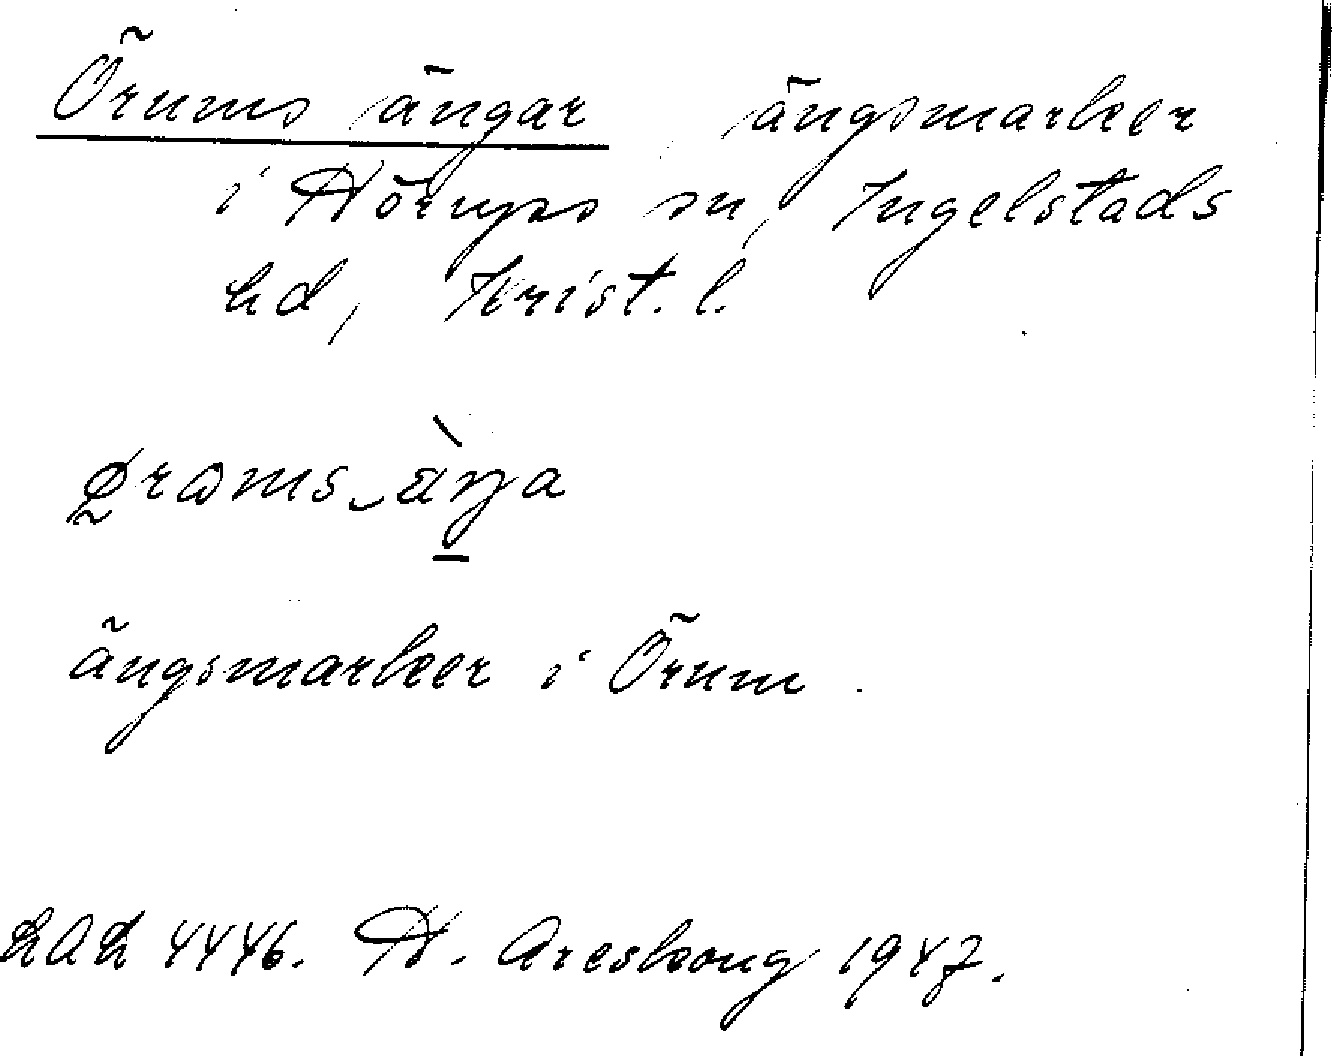 Örums ängar ängsmarker
i Hörups sn, Ingelstads
hd, Krist. l.
ängsmarker i Örum.
LAL 4446. H. Areskoug 1947.